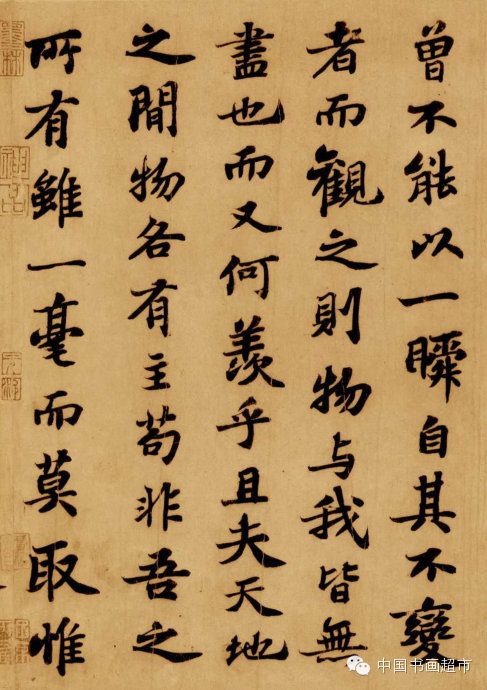 曾不能以一瞬自其不變
者而觀之則物与我皆無
盡也而又何羨乎且夫天地
之間物各有主苟非吾之
所有雖一毫而莫取惟
中国书画超市